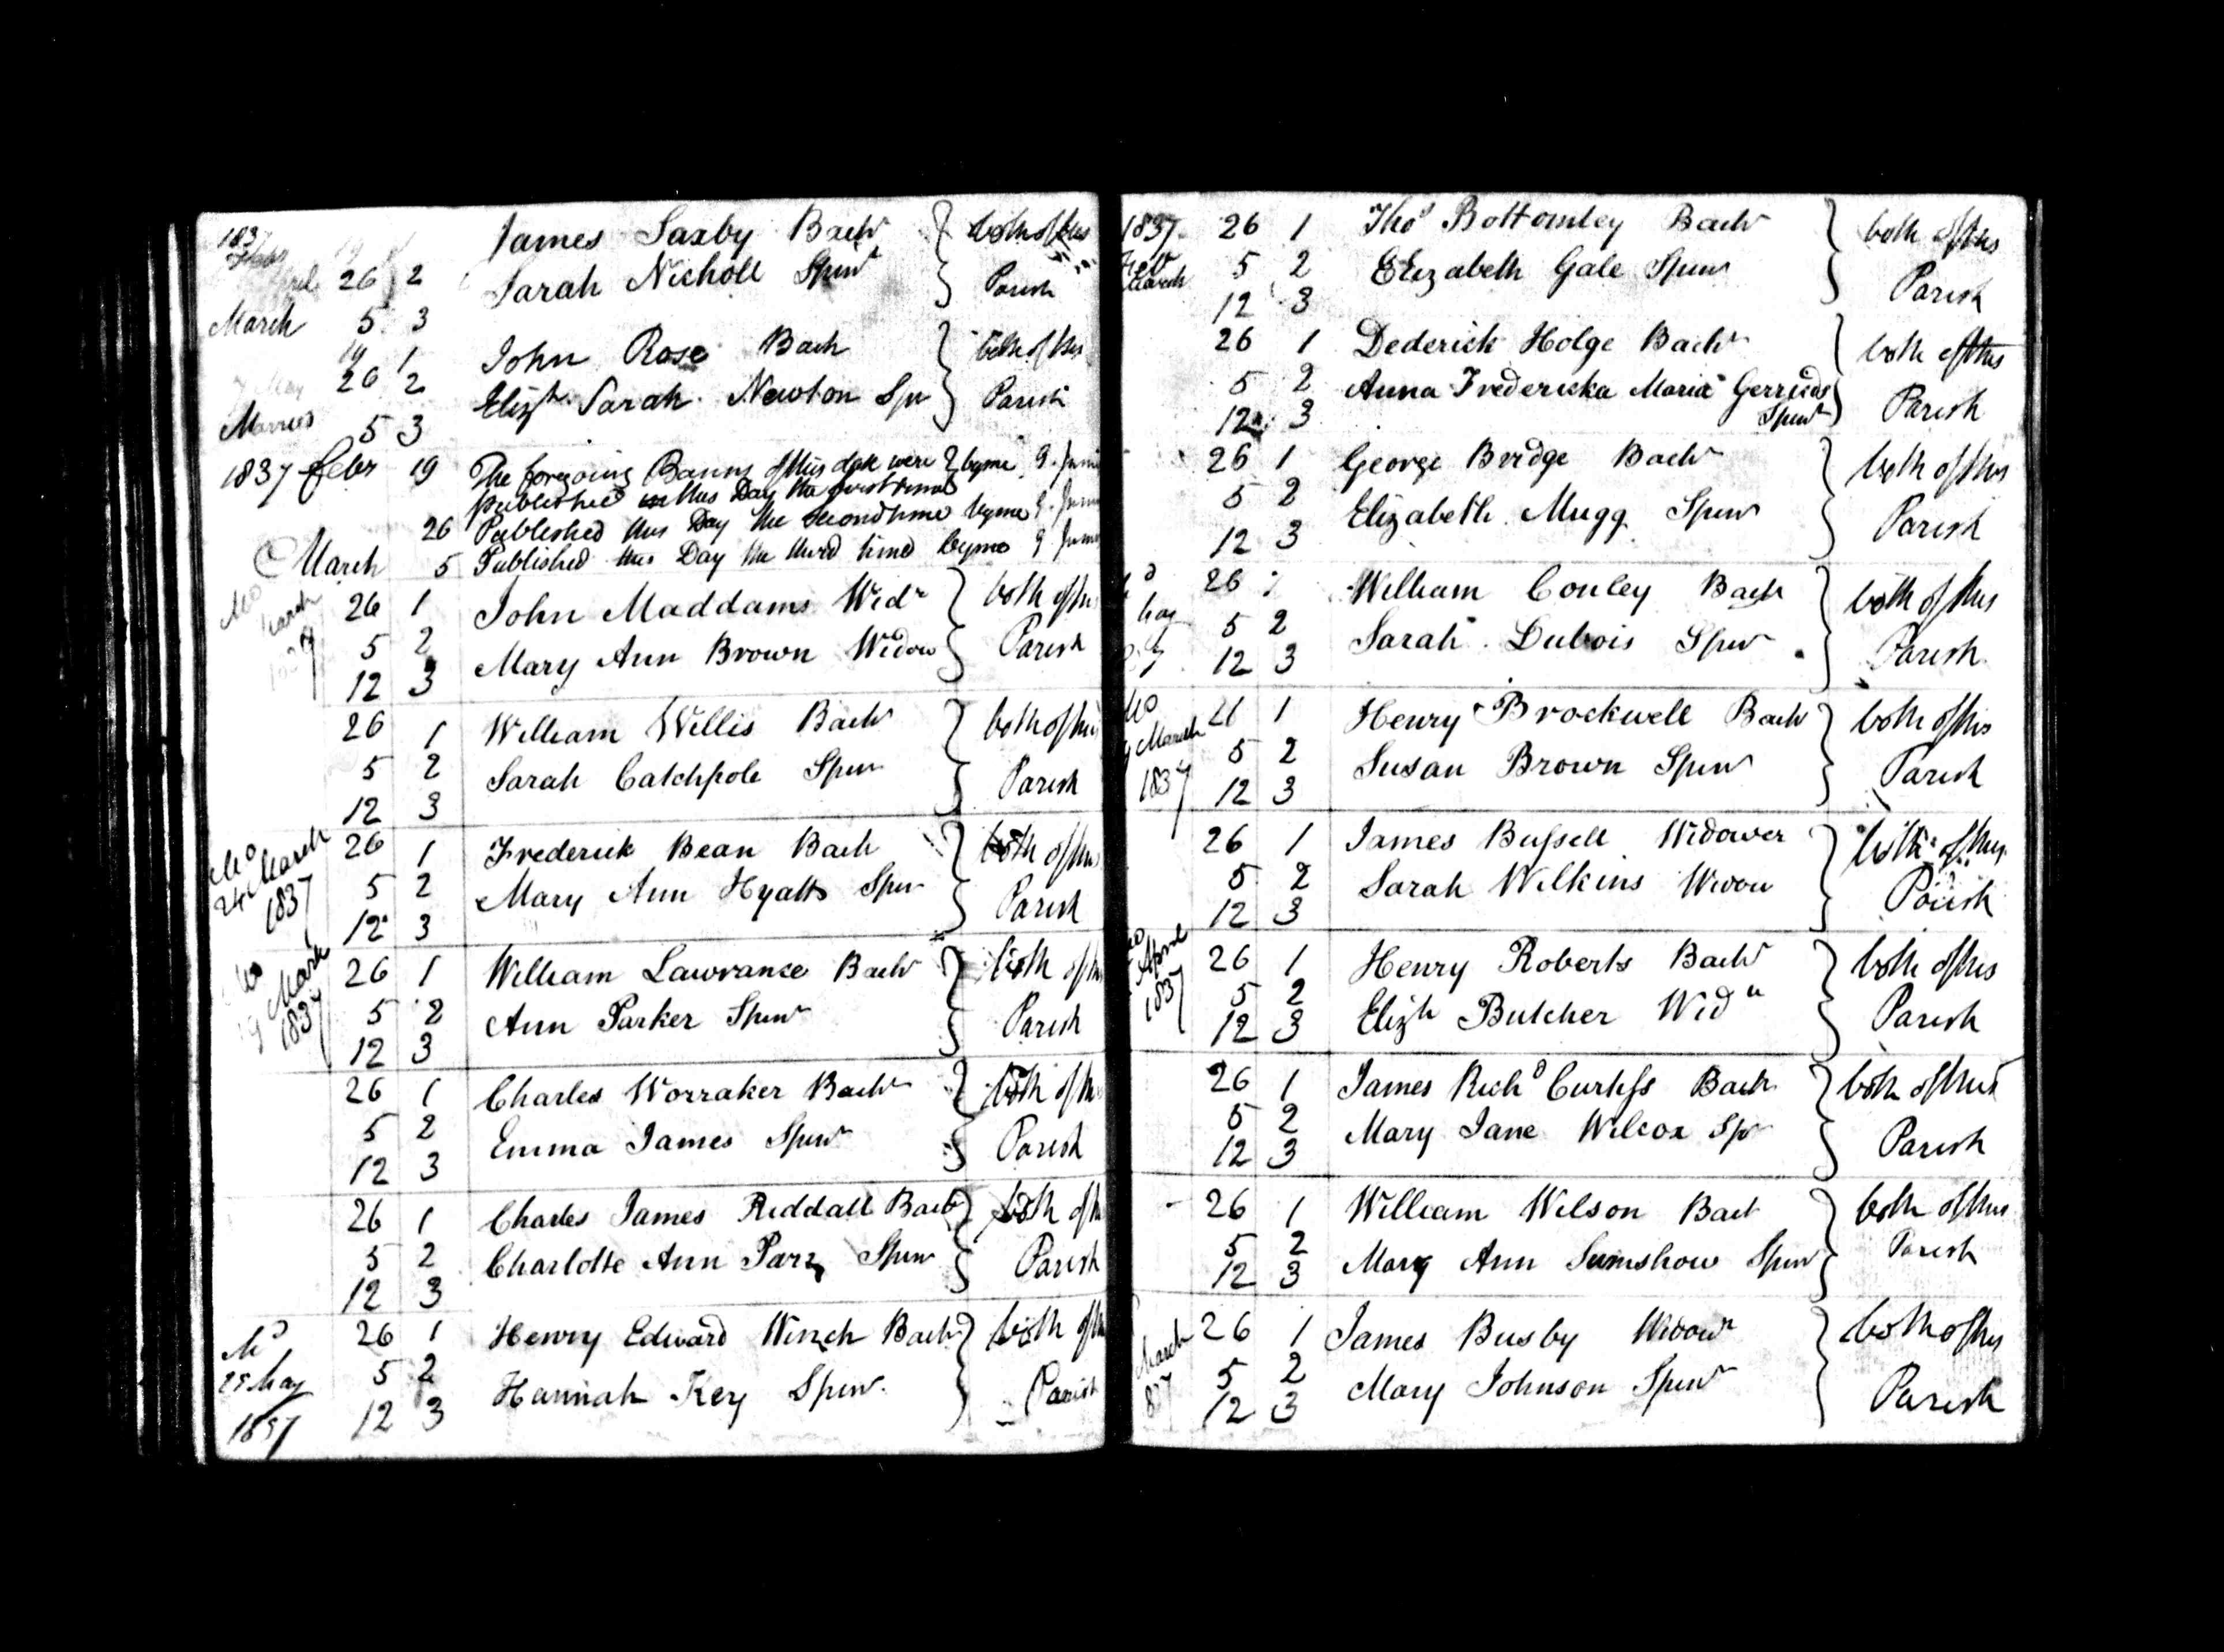 1837
James Saxby Bachr } both of this
26 2 Sarah Nicholl Spinr } Parish
March 5 3
19 1 John Rose Bach } both of this
26 2 Elizth Sarah Newton Spr } Parish
5 3
1837 Febr 19 The foregoing Banns of this date were } by me
published in this Day the first time
26 Published this Day the second time by me
March 5 Published this Day the third time by me
26 1 John Maddams Widr } both of this
5 2 Mary Ann Brown Widow } Parish
12 3
26 1 William Willis Bachr } both of this
5 2 Sarah Catchpole Spinr } Parish
12 3
24 March 1837
26 1 Frederick Bean Bach } both of this
5 2 Mary Ann Hyatts Spinr } Parish
12 3
March 1837
26 1 William Lawrance Bachr } both of
5 2 Ann Parker Spinr } Parish
12 3
26 1 Charles Worraker Bachr } both of
5 2 Emma James Spinr } Parish
12 3
26 1 Charles James Riddall Bachr } both of
5 2 Charlotte Ann Parz Spinr } Parish
12 3
Md 26 1 Henry Edward Winch Bachr } both of
May 5 2 Hannah Key Spinr } Parish
1837 12 3
1837 26 1 Thos Bottomley Bachr } both of this
Feb 5 2 Elizabeth Gale Spinr } Parish
March 12 3
26 1 Dederick Holge Bachr } both of this
5 2 Anna Fredericka Maria Gerrieds } Parish
12 3 Spinr
26 1 George Bridge Bachr } both of this
5 2 Elizabeth Mugg Spinr } Parish
12 3
26 1 William Conley Bach } both of this
5 2 Sarah Dubois Spinr } Parish
12 3
21 1 Henry Brockwell Bachr } both of this
March 5 2 Susan Brown Spinr } Parish
1837 12 3
26 1 James Bussell Widower } both of this
5 2 Sarah Wilkins Widow } Parish
12 3
April 1837
26 1 Henry Roberts Bachr } both of this
5 2 Elizh Butcher Widw } Parish
12 3
26 1 James Richd Curtiss Bach } both of this
5 2 Mary Jane Wilcox Spr } Parish
12 3
26 1 William Wilson Bach } both of this
5 2 Mary Ann Sumshow Spinr } Parish
12 3
March 26 1 James Busby Widowr } both of this
5 2 Mary Johnson Spinr } Parish
12 3